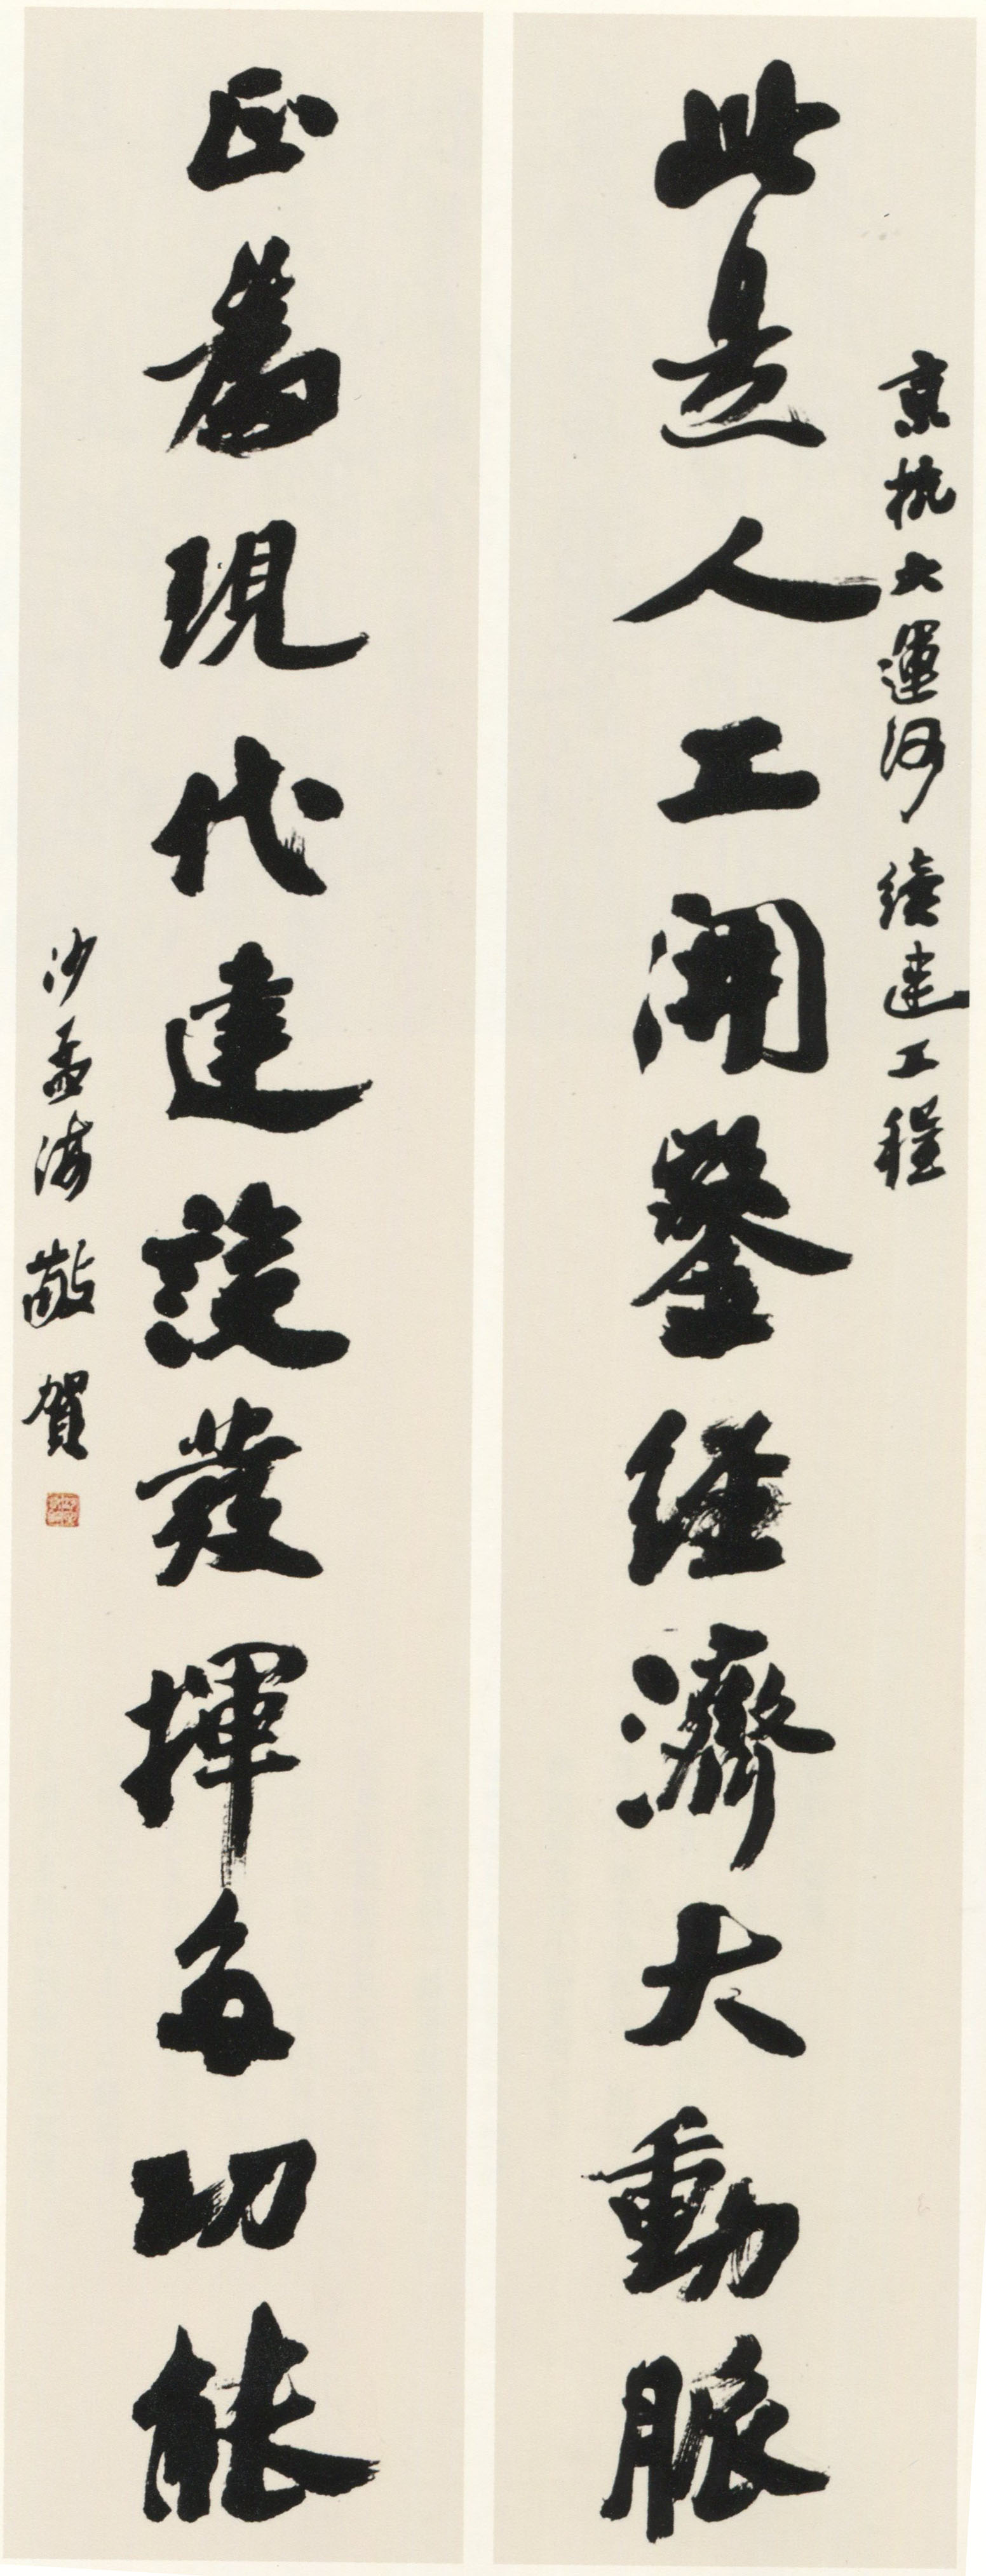 京杭大運河續建工程
此是人工開鑿經濟大動脈
正爲現代建設發揮多功能
沙孟海敬賀